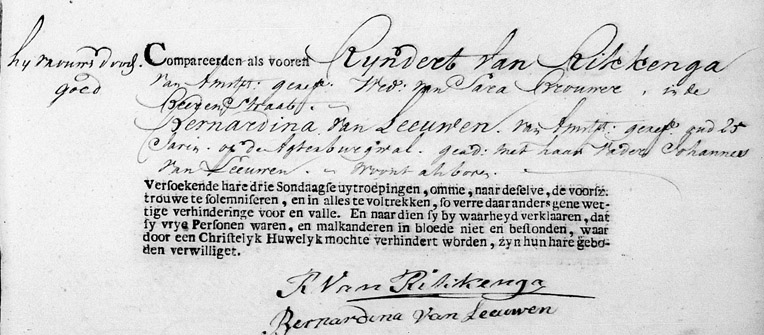 hy vrouws doodt
goed
Compareerden als vooren Rijndert Van Rilikenga
van Amst: geref: Wed: van Sara Brouwer, in de
Reegen Straat.
Bernardina van Leeuwen. van Amst: geref: oud 25
Jaren. op de Agtenburgwal. geads: met haar vader Johannes
van Leeuwen. woont als boven.
Versoekende hare drie Sondaagse uytroepingen, omme, naar deselve, de voorsz.
trouwe te solemniseren, en in alles te voltrekken, so verre daar anders gene wet-
tige verhinderinge voor en valle. En naar dien sy by waarheyd verklaaren, dat
sy vrye Personen waren, en malkanderen in bloede niet en bestonden, waar
door een Christelyk Huwelyk mochte verhindert worden, zyn hun hare gebo-
den verwilliget.
R Van Rilikenga
Bernardina van Leeuwen